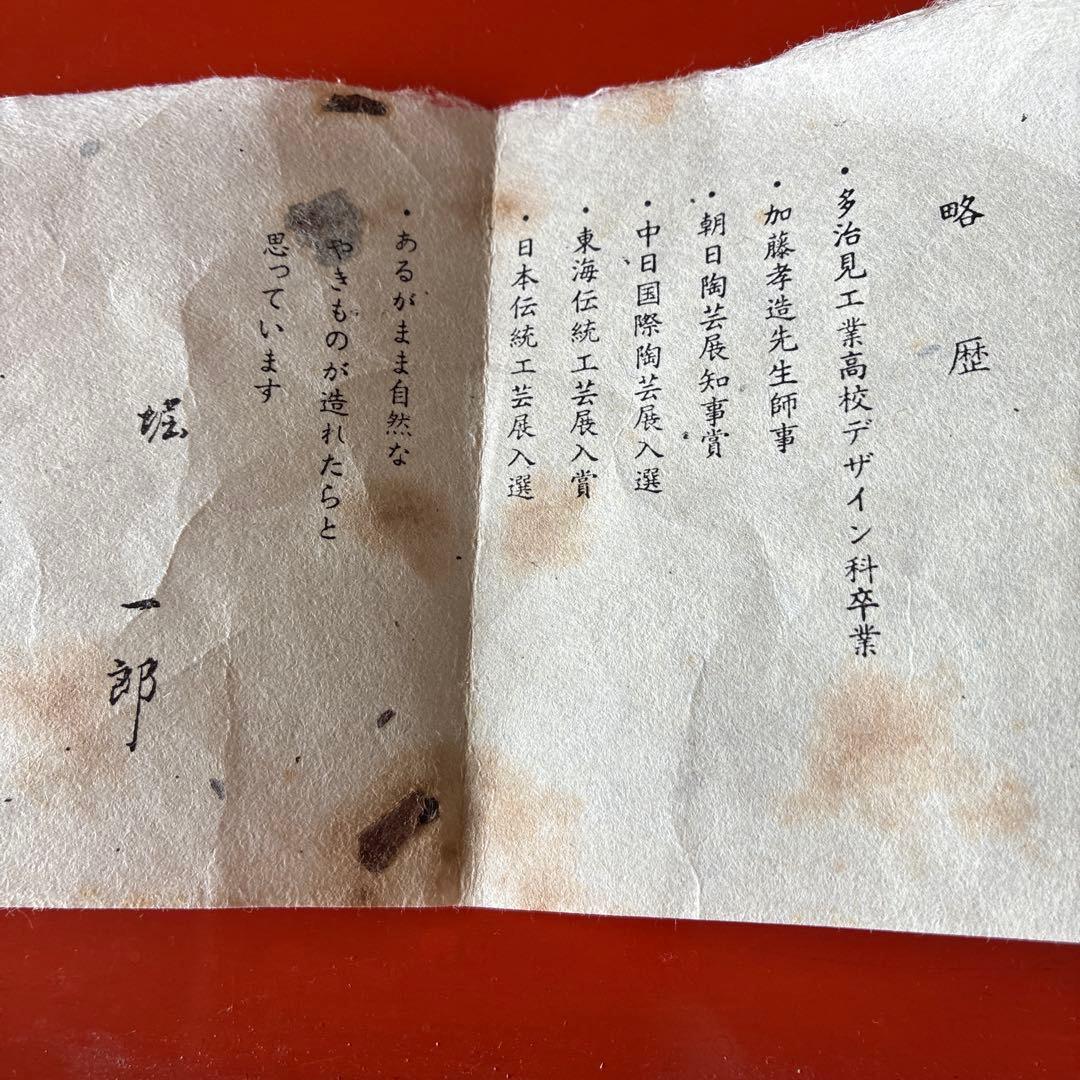 略歴
・多治見工業高校デザイン科卒業
・加藤孝造先生師事
・朝日陶芸展知事賞
・中日国際陶芸展入選
・東海伝統工芸展入賞
・日本伝統工芸展入選
・あるがまま自然な
やきものが造れたらと
思っています
堀一郎